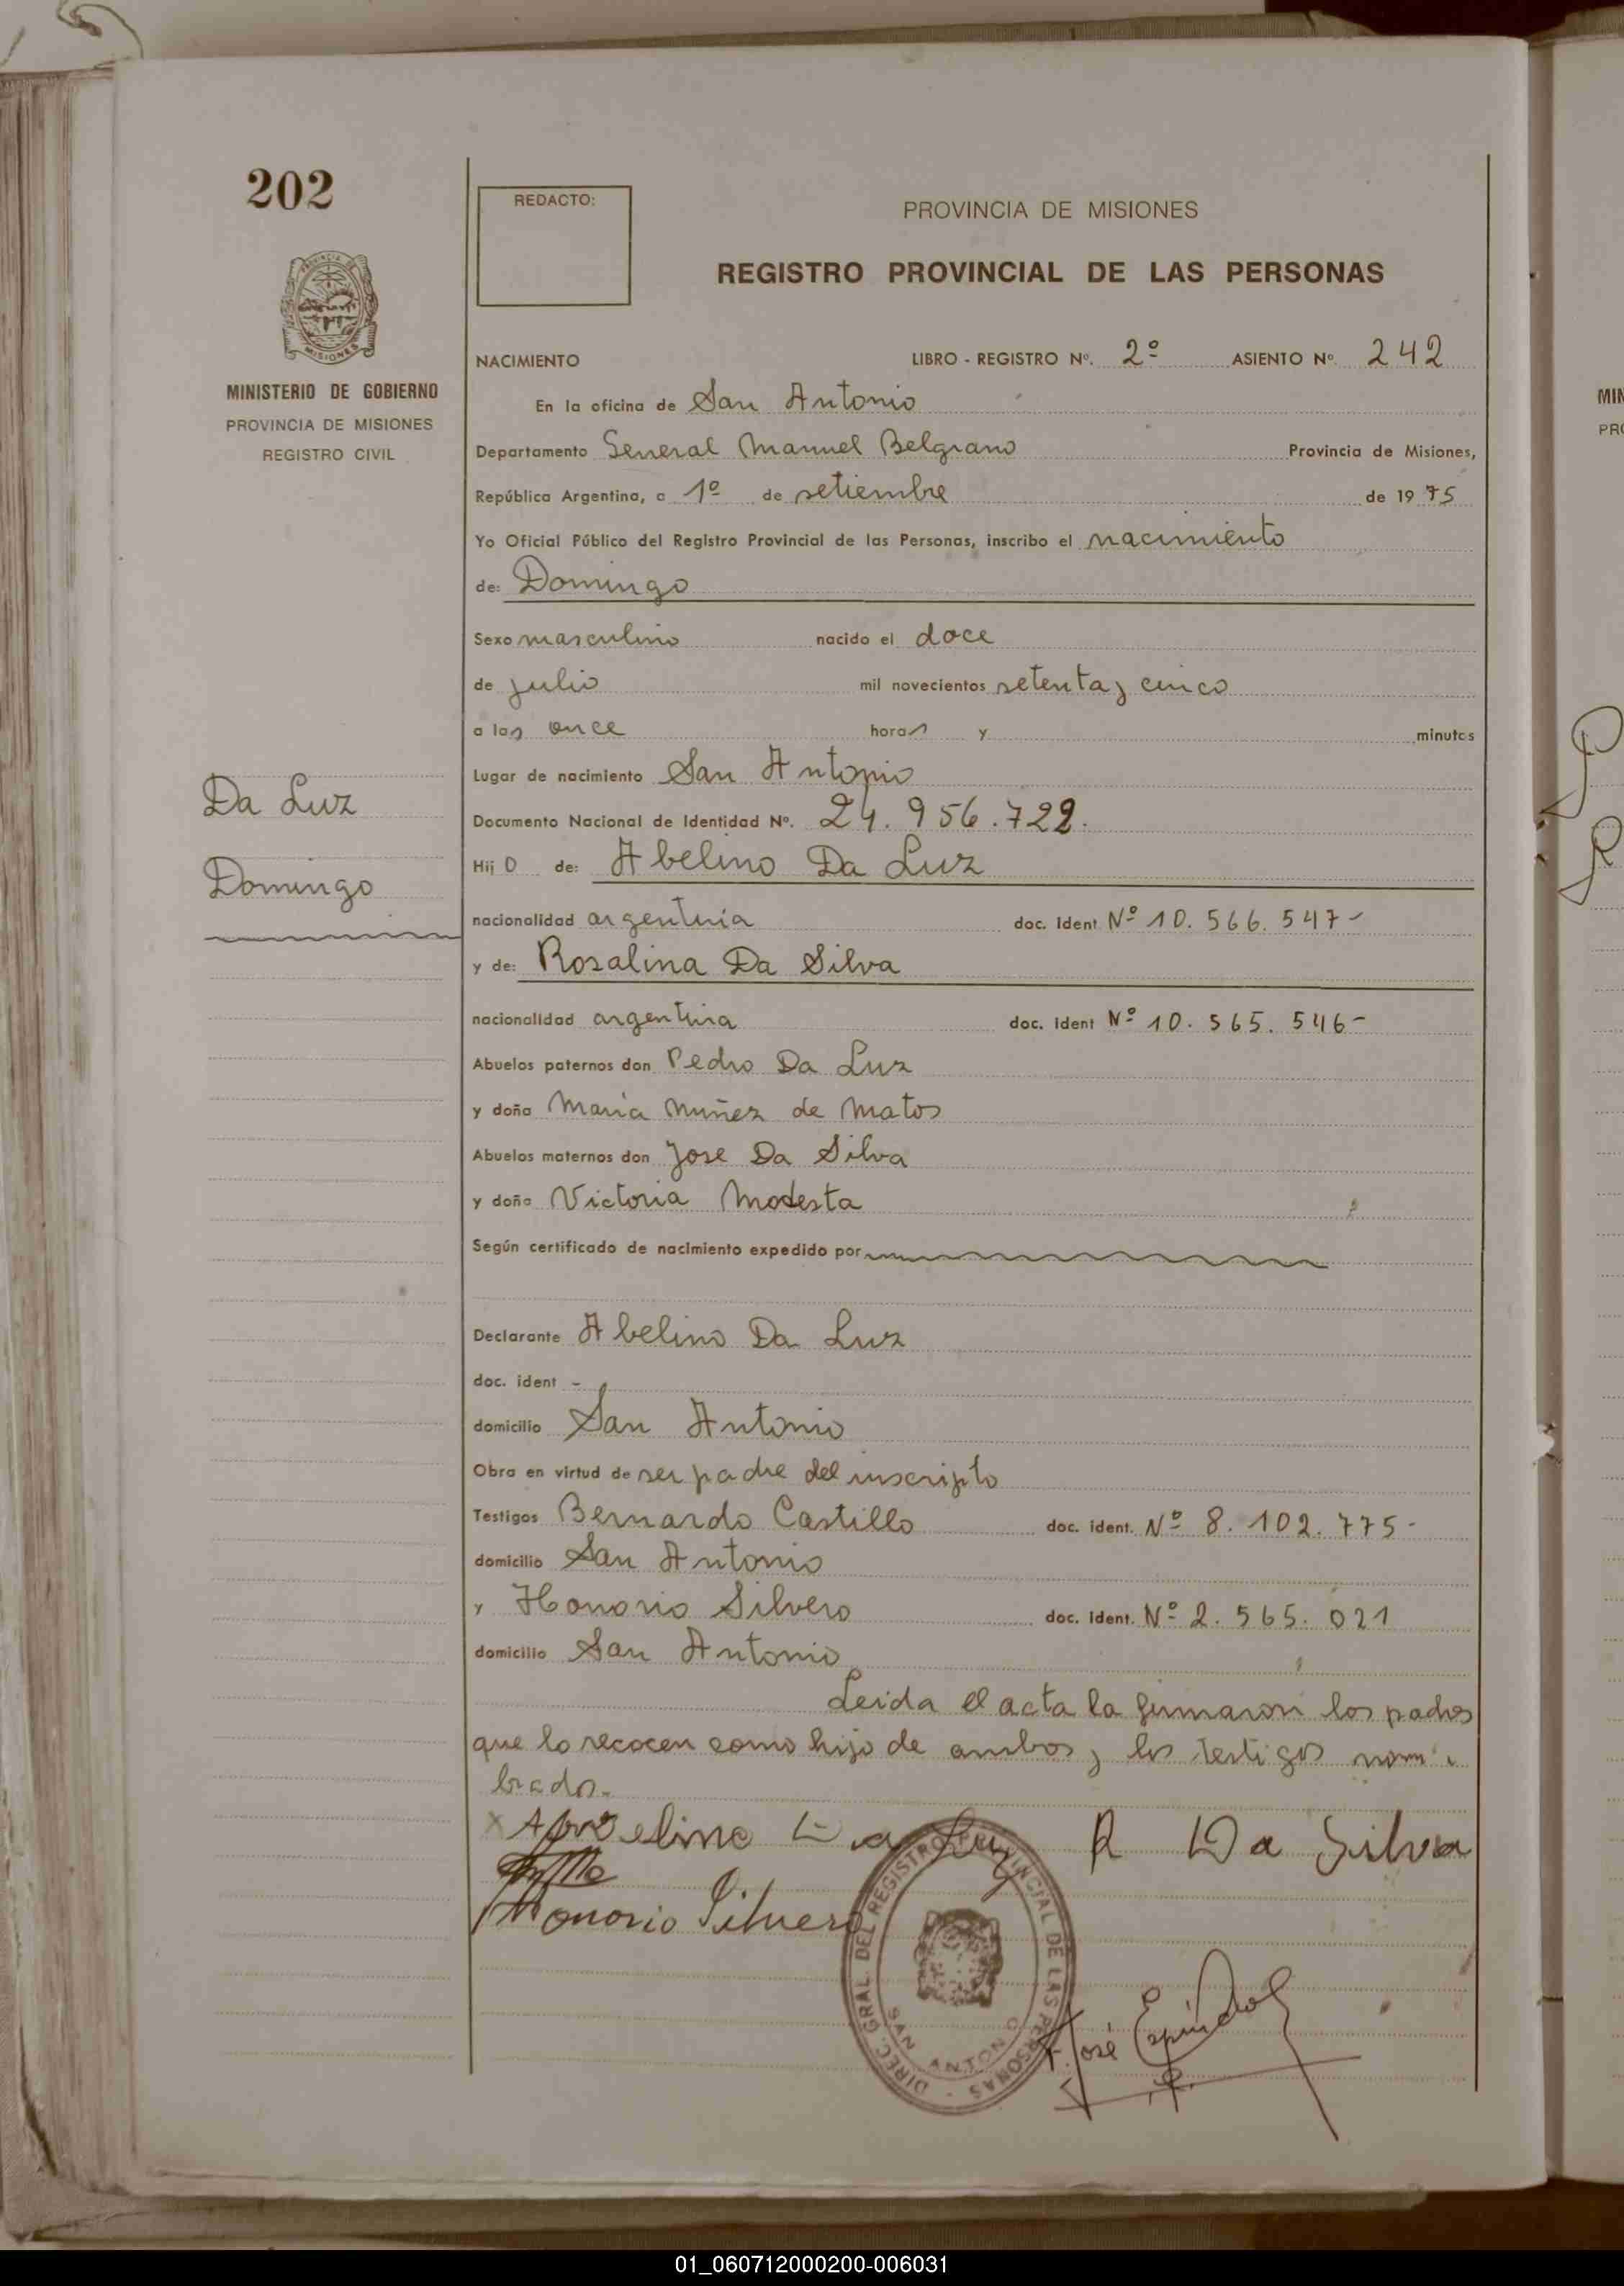 202
REDACTO:
PROVINCIA DE MISIONES
REGISTRO PROVINCIAL DE LAS PERSONAS
PROVINCIA DE
MISIONES
MINISTERIO DE GOBIERNO
PROVINCIA DE MISIONES
REGISTRO CIVIL
NACIMIENTO LIBRO - REGISTRO Nº. 2º ASIENTO Nº. 242
En la oficina de San Antonio
Departamento General Manuel Belgrano Provincia de Misiones,
República Argentina, a 1º de setiembre de 19 75
Yo Oficial Público del Registro Provincial de las Personas, inscribo el nacimiento
de: Domingo
Sexo masculino nacido el doce
de julio mil novecientos setenta y cinco
a las once horas y minutos
Lugar de nacimiento San Antonio
Da Luz
Documento Nacional de Identidad Nº. 24.956.722.
Hijo de: Abelino Da Luz
Domingo
nacionalidad argentina doc. Ident Nº 10.566.547-
y de: Rosalina Da Silva
nacionalidad argentina doc. Ident Nº 10.565.546-
Abuelos paternos don Pedro Da Luz
y doña María Nuñez de Matos
Abuelos maternos don Jose Da Silva
y doña Victoria Modesta
Según certificado de nacimiento expedido por
Declarante Abelino Da Luz
doc. ident -
domicilio San Antonio
Obra en virtud de ser padre del inscripto
Testigos Bernardo Castillo doc. ident. Nº 8.102.775-
domicilio San Antonio
y Honorio Silvero doc. Ident. Nº 2.565.021
domicilio San Antonio
Leida el acta la firmaron los padres
que lo recocen como hijo de ambos y los testigos nom
brados.-
x Da Luz R Da Silva
Honorio Silvero
DIREC. GRAL. DEL REGISTRO PROVINCIAL DE LAS PERSONAS -
SAN ANTONIO
José Espindola
MIN
PRO
01_060712000200-006031